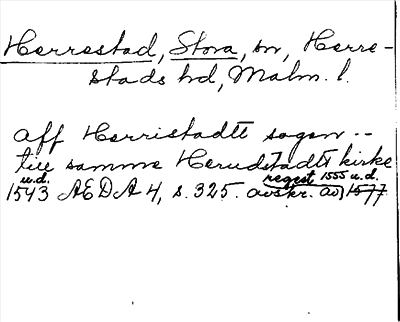 Herrestad, Stora, sn, Herre-
stads hd, Malm. l.
aff Herristadtt sogen --
till samme Herudstadtt kirke
u.d. regest 1555 u.d.
1543 ÆDA 4, s. 325. avskr. av 1577